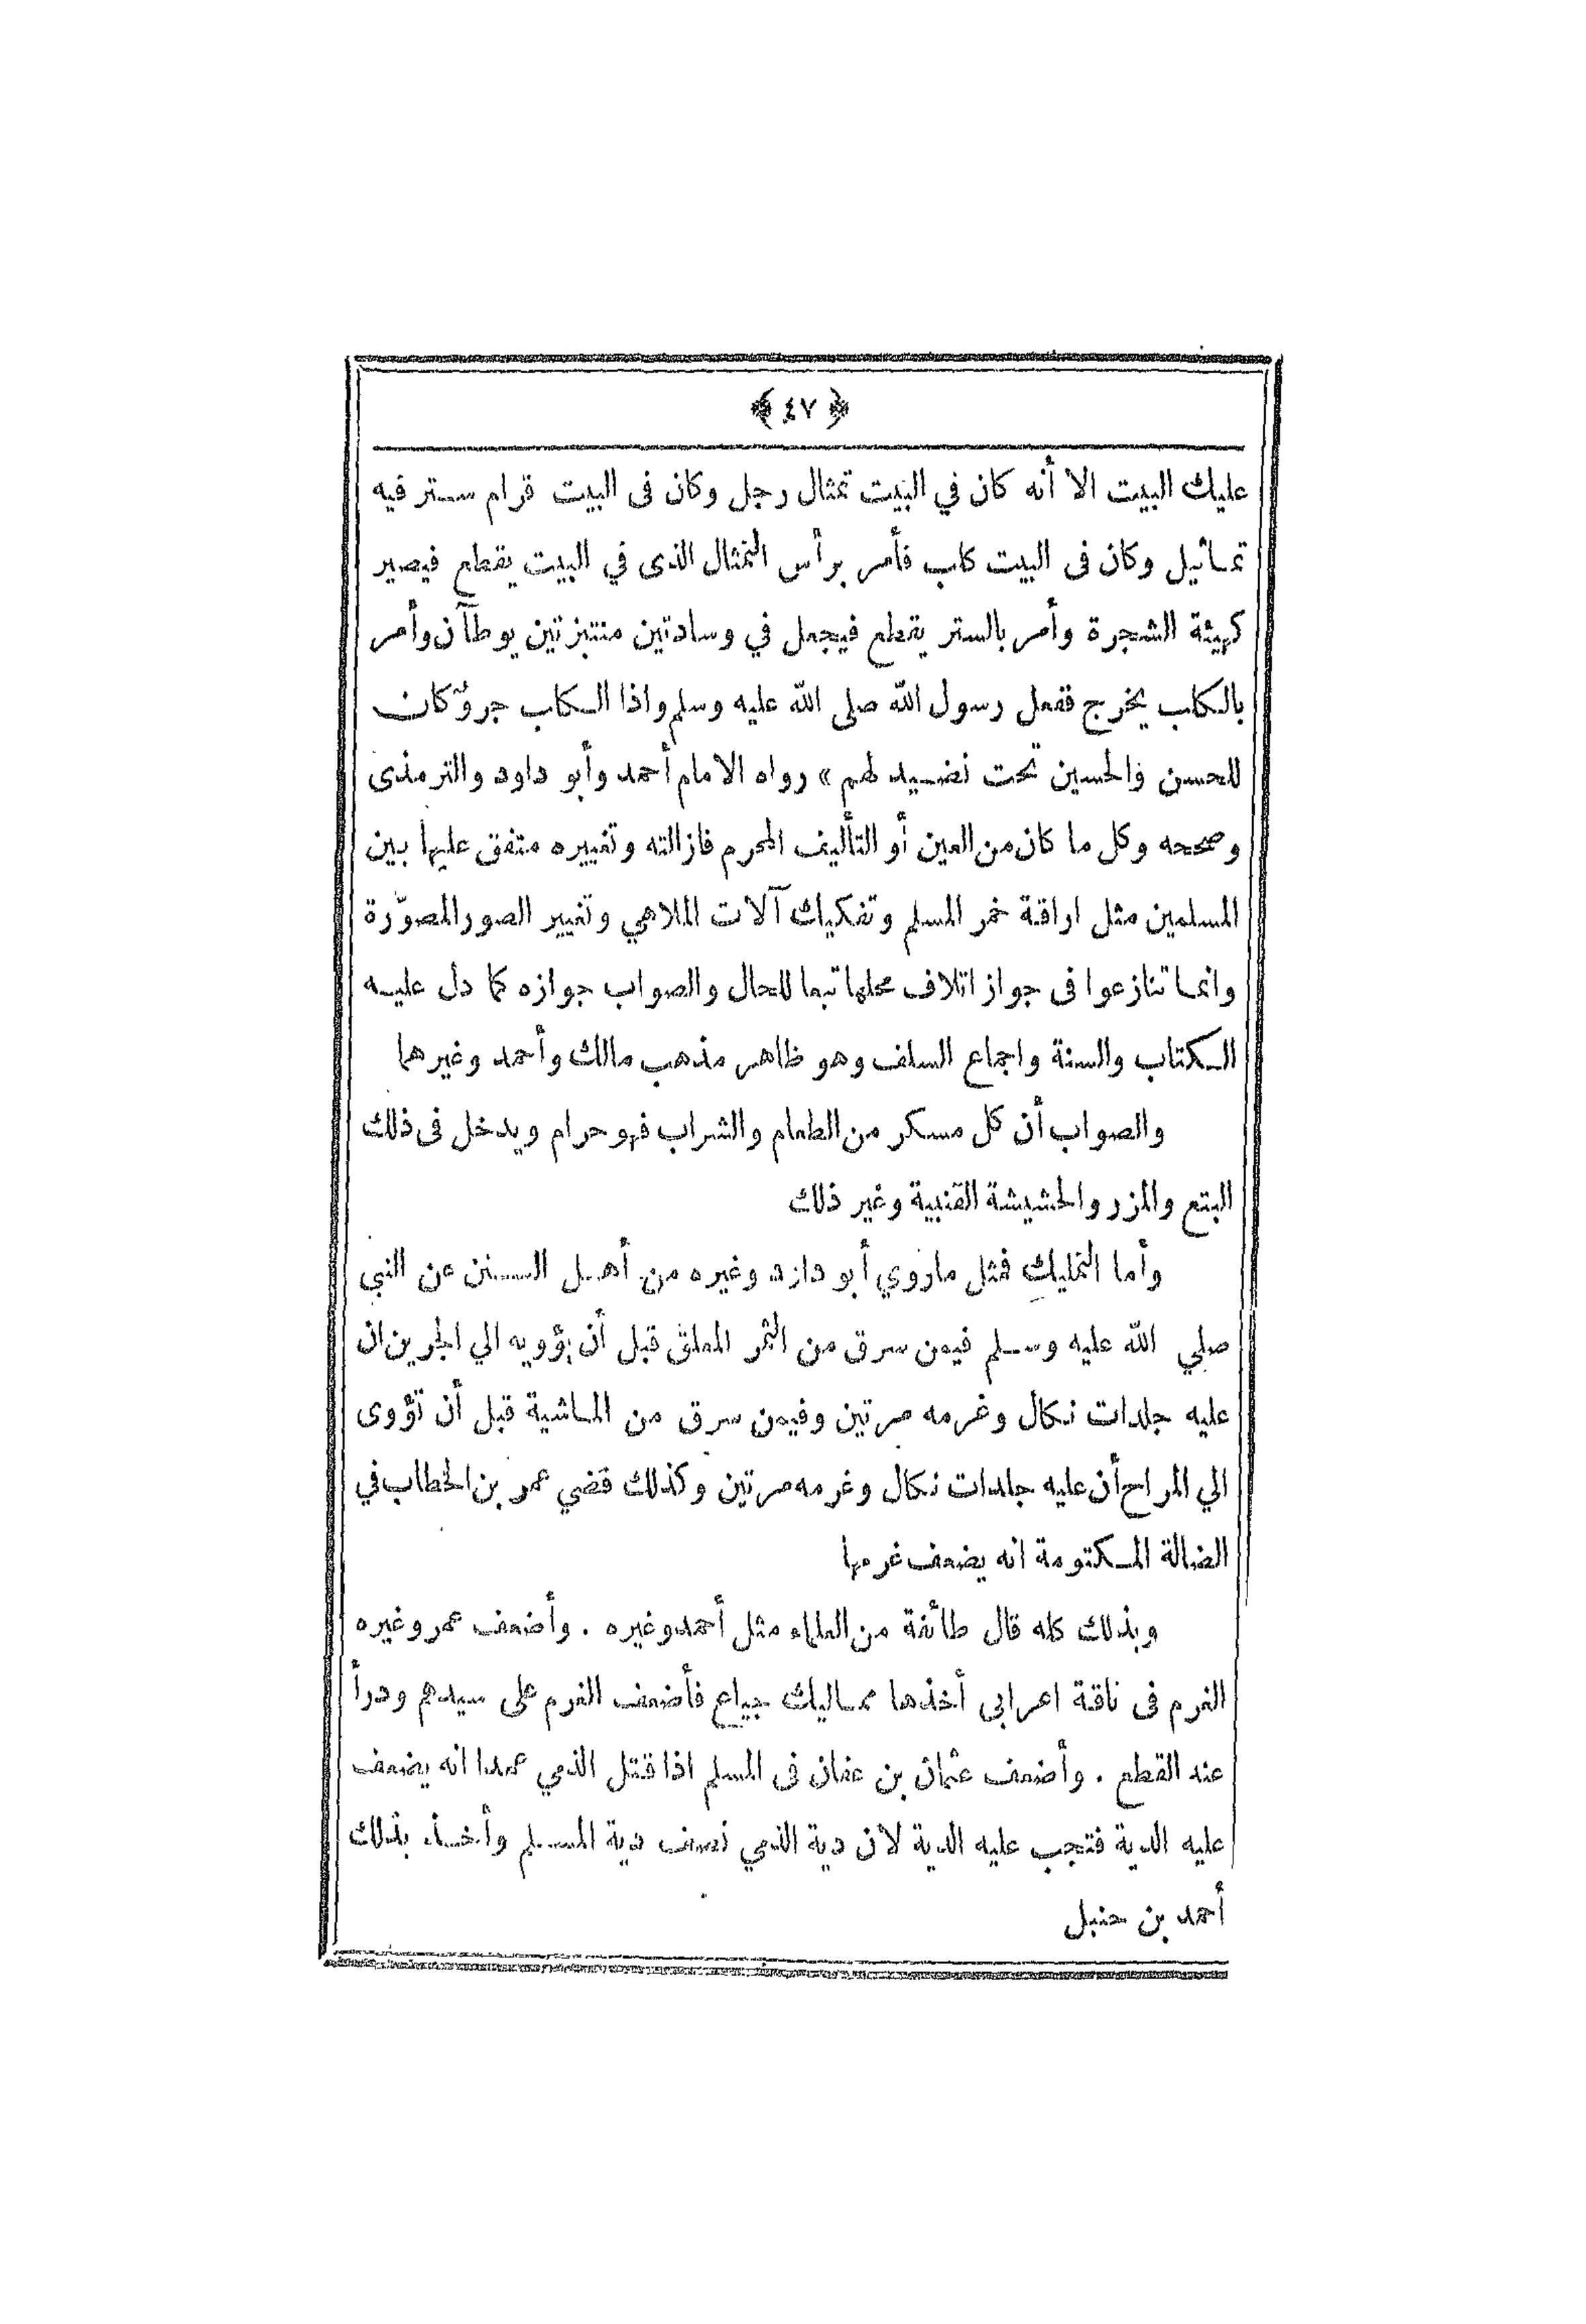 ﴿ ٤٧ ﴾
عليك البيت الا أنه كان في البيت تمثال رجل وكان فى البيت قرام ستر فيه
تماثيل وكان فى البيت كلب فأمر برأس التمثال الذى في البيت يقطع فيصير
كهيئة الشجرة وأمر بالستر يقطع فيجعل في وسادتين منتبزتين يوطآن وأمر
بالكلب يخرج ففعل رسول الله صلى الله عليه وسلم واذا الكلب جروٌ كان
للحسن والحسين تحت نضيد لهم » رواه الامام أحمد وأبو داود والترمذى
وصححه وكل ما كان من العين أو التأليف المحرم فازالته وتغييره متفق عليها بين
المسلمين مثل اراقة خمر المسلم وتفكيك آلات الملاهي وتغيير الصور المصوّرة
وانما تنازعوا فى جواز اتلاف محلها تبعا للحال والصواب جوازه كما دل عليه
الكتاب والسنة واجماع السلف وهو ظاهر مذهب مالك وأحمد وغيرهما
والصواب أن كل مسكر من الطعام والشراب فهو حرام ويدخل فى ذلك
البتع والمزر والحشيشة القنبية وغير ذلك
وأما التمليك فمثل ماروي أبو داود وغيره من أهل السنن عن النبي
صلي الله عليه وسلم فيمن سرق من الثمر المعلق قبل أن يؤويه الي الجرين ان
عليه جلدات نكال وغرمه مرتين وفيمن سرق من الماشية قبل أن تؤوى
الي المراح أن عليه جلدات نكال وغرمه مرتين وكذلك قضي عمر بن الخطاب في
الضالة المكتومة انه يضعف غرمها
وبذلك كله قال طائفة من العلماء مثل أحمد وغيره . وأضعف عمر وغيره
الغرم فى ناقة اعرابى أخذها مماليك جياع فأضعف الغرم على سيدهم ودرأ
عنه القطع . وأضعف عثمان بن عفان فى المسلم اذا قتل الذمي عمدا انه يضعف
عليه الدية فتجب عليه الدية لان دية الذمي نصف دية المسلم وأخذ بذلك
أحمد بن حنبل